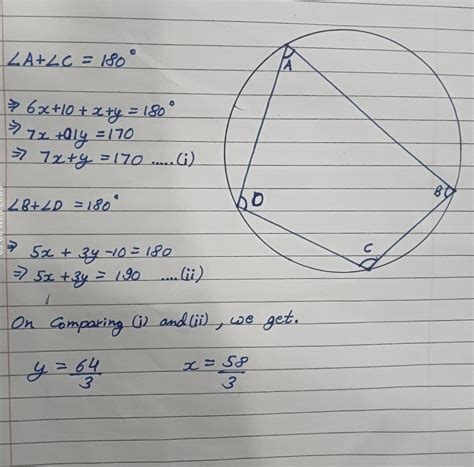 ∠A+∠C = 180°
⇒ 6x+10+x+y=180°
⇒ 7x+y=170
⇒ 7x+y=170 .....(i)
∠B+∠D=180°
⇒ 5x + 3y-10=180
⇒ 5x+3y = 190 ....(ii)
On Comparing (i) and (ii), we get.
y = 64/3 x = 58/3
A
B
D
C